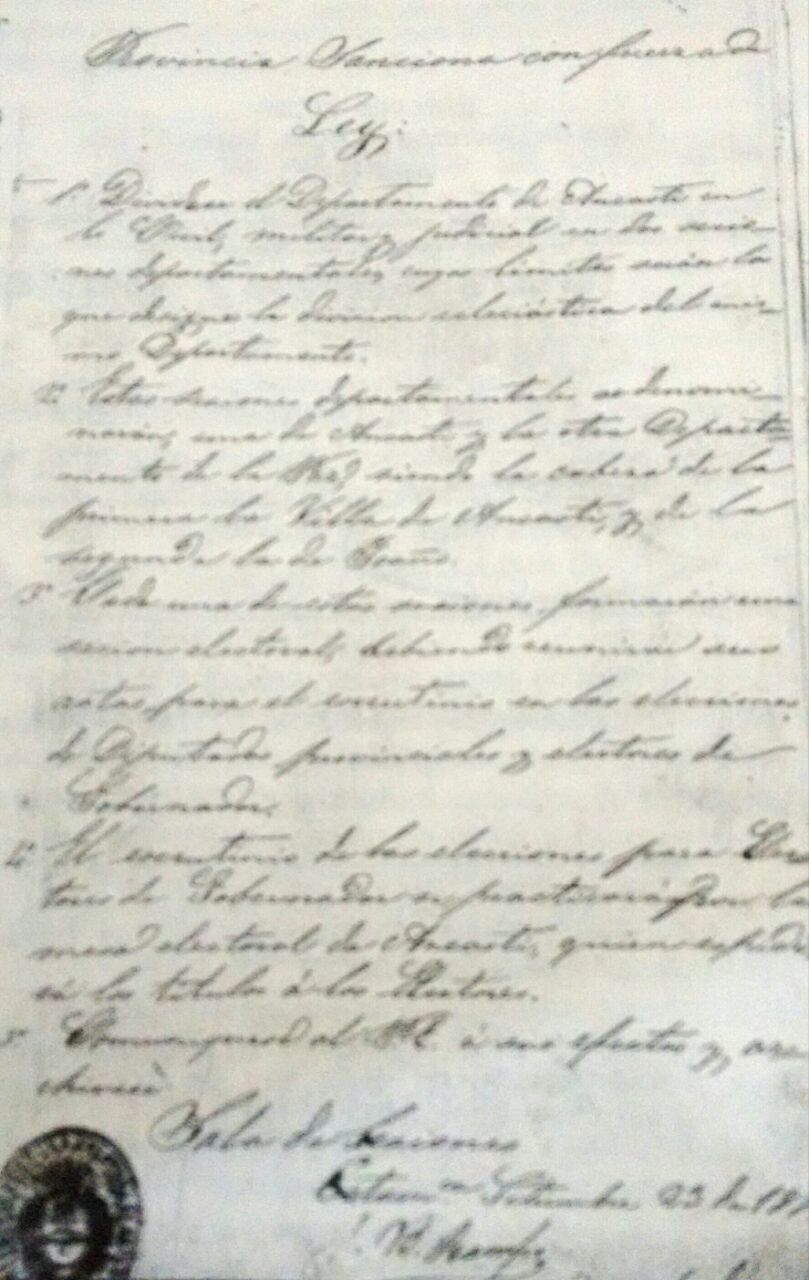 Provincia Sanciona con fuerza de
Ley:
1º Dividese el Departamento de Ancasti en
lo Civil, militar y judicial en dos seccio-
nes departamentales, cuyos limites serán los
que designe la division eclesiástica del mis-
mo Departamento.
2º Estas secciones departamentales se denomi-
narán, una de Ancasti y la otra Departa-
mento de la Paz, siendo la cabeza de la
primera la Villa de Ancasti, y de la
segunda la de Icaño.
3º Cada una de estas secciones formarán una
seccion electoral, debiendo reunirse sus
actas para el escrutinio en las elecciones
de Diputados provinciales y electores de
Gobernador.
4º El escrutinio de las elecciones para Elec
tores de Gobernador se practicará por la
mesa electoral de Ancasti, quien espedi
rá los titulos á los Electores.
5º Comuniquese al P.E. á sus efectos y, ar
chivese
Sala de Sesiones
Setiembre 23 de